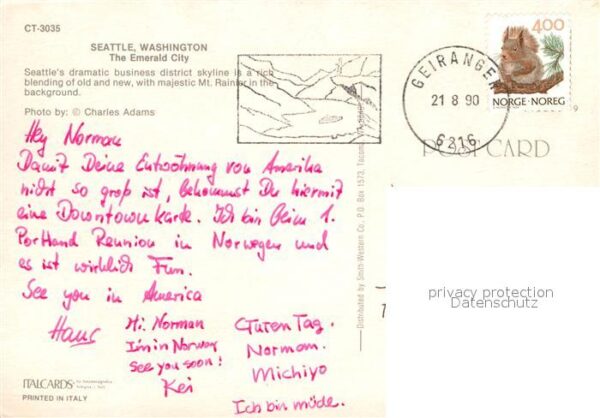 CT-3035
SEATTLE, WASHINGTON
The Emerald City
Seattle's dramatic business district skyline is a rich
blending of old and new, with majestic Mt. Rainier in the
background.
Photo by: © Charles Adams
GEIRANGER
21 8 90
6216
400
NORGE·NOREG
POSTCARD
Hey Norman
Damit Deine Entwöhnung von Amerika
nicht so groß ist, bekommst Du hiermit
eine Downtownkarte. Ich bin beim 1.
Portland Reunion in Norwegen und
es ist wirklich Fun.
See you in America
Hans
Hi. Norman
I'm in Norway
see you soon!
Kei
Guten Tag.
Norman.
Michiyo
Ich bin müde.
Distributed by Smith-Western Co., P.O. Box 1573, Tacoma
privacy protection
Datenschutz
ITALCARDS
PRINTED IN ITALY